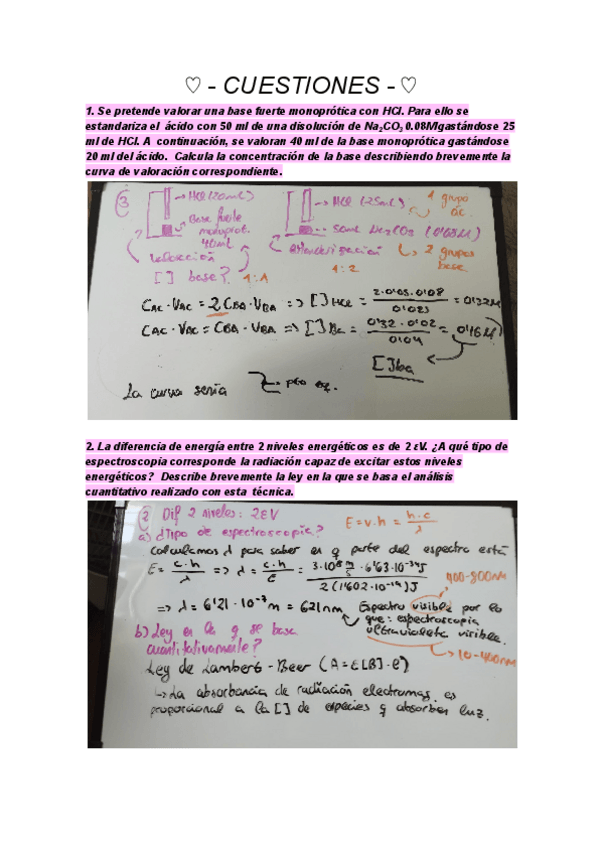 ♡ - CUESTIONES - ♡
1. Se pretende valorar una base fuerte monoprótica con HCl. Para ello se
estandariza el ácido con 50 ml de una disolución de Na₂CO₃ 0.08Mgastándose 25
ml de HCl. A continuación, se valoran 40 ml de la base monoprótica gastándose
20 ml del ácido. Calcula la concentración de la base describiendo brevemente la
curva de valoración correspondiente.
3 → HCl (20mL) → HCl (25mL) 1 grupo
ác.
Base fuerte
monoprot.
40mL
50mL Na₂CO₃ (0'08M)
valoración
Estandarización
→ 2 grupos
base.
[ ] base? 1:1 1:2
CAC · VAC = 2 CBA · VBA => [ ]HCl = 2·0'05·0'08 / 0'025 = 0'32M
CAC · VAC = CBA · VBA => [ ]Ba = 0'32 · 0'02 / 0'04 = 0'16M
[ ]ba
La curva sería → pto eq.
2. La diferencia de energía entre 2 niveles energéticos es de 2 εV. ¿A qué tipo de
espectroscopia corresponde la radiación capaz de excitar estos niveles
energéticos? Describe brevemente la ley en la que se basa el análisis
cuantitativo realizado con esta técnica.
2 Dif 2 niveles: 2eV
a) ¿Tipo de espectroscopía? E = ν·h = h·c / λ
Calculamos λ para saber en q parte del espectro está
E = c·h / λ => λ = c·h / E = 3·10⁸ m/s · 6'63·10⁻³⁴J / 2(1'602·10⁻¹⁹)J
400-800nm
=> λ = 6'21·10⁻⁷m = 621nm Espectro visible por lo
que: espectroscopia
ultravioleta visible.
→ 10-400nm
b) Ley en la q se basa
cuantitativamente?
Ley de Lambert-Beer (A = ε[B]·l)
↳ La absorbancia de radiación electromag. es
proporcional a la [ ] de especies q absorben luz.